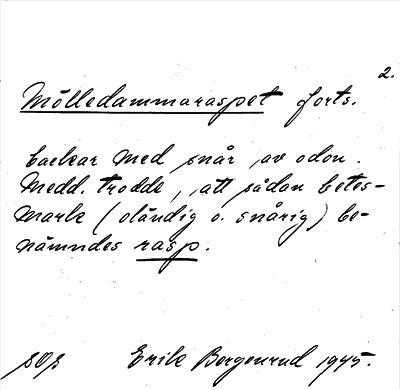 2.
Mölledammaraspet forts.
backar med snår av odon.
Medd. trodde, att sådan betes-
mark (oländig o. snårig) be-
nämndes rasp.
Erik Bergenrud 1945.